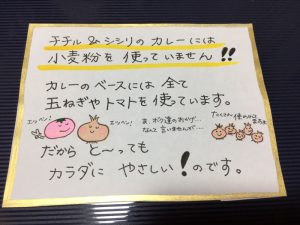 チチル&シシリのカレーには
小麦粉を使っていません!!
カレーのベースには全て
玉ねぎやトマトを使っています。
エッヘン!
エッヘン!
ま、ボク達のおかげ…
なんて言いませんが…
たくさん
だから と〜っても
カラダに やさしい!のです。